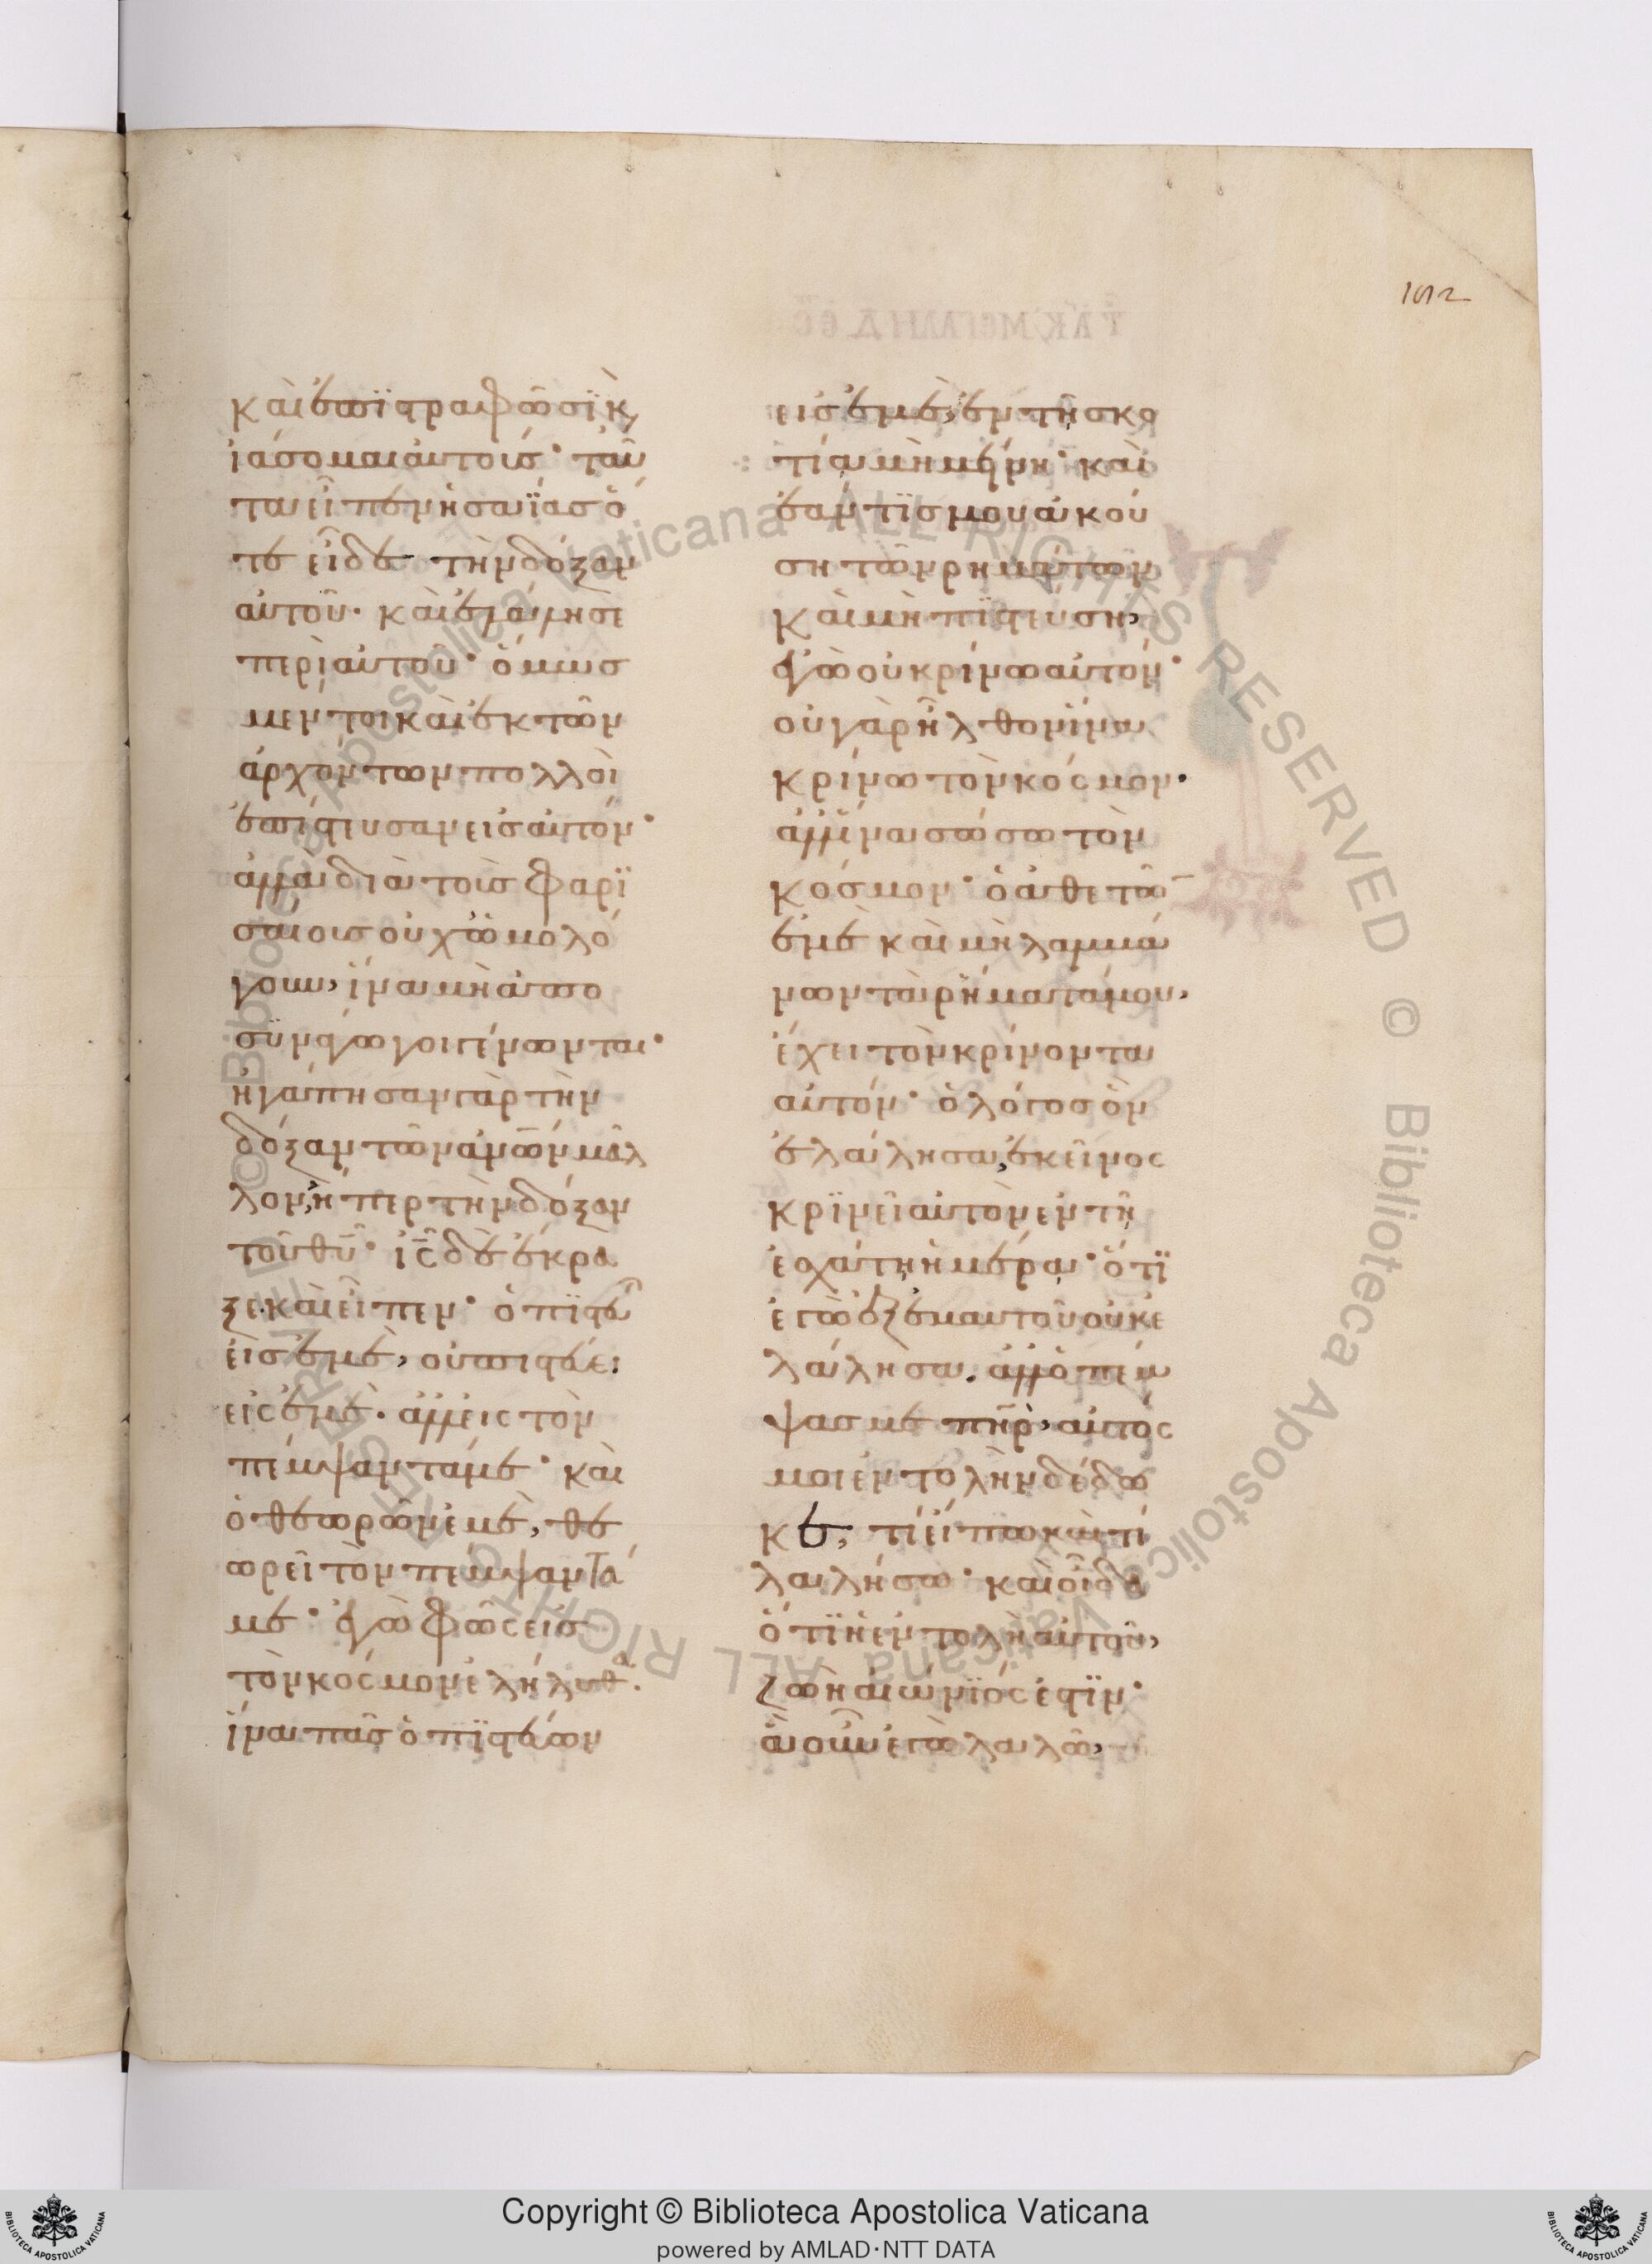 102
καὶ ἐπιστραφῶσι κ
ἰάσομαι αὐτοὺς· ταῦ
τα εἶπεν ἡσαΐας ὅ
τε εἶδε τὴν δόξαν
αὐτοῦ· καὶ ἐλάλησε
περὶ αὐτοῦ· ὅμως
μέντοι καὶ ἐκ τῶν
ἀρχόντων πολλοὶ
ἐπίστευσαν εἰς αὐτόν·
ἀλλὰ διὰ τοὺς φαρι
σαίους οὐχ ὡμολό
γουν, ἵνα μὴ ἀπο
συνάγωγοι γένωνται·
ἠγάπησαν γὰρ τὴν
δόξαν τῶν ἀνῶν μᾶλ
λον, ἤπερ τὴν δόξαν
τοῦ θῦ· ἰς δὲ ἔκρα
ξε καὶ εἶπεν· ὁ πιστεύων
εἰς ἐμὲ, οὐ πιστεύει
εἰς ἐμὲ· ἀλλ' εἰς τὸν
πέμψαντά με· καὶ
ὁ θεωρῶν ἐμὲ, θε
ωρεῖ τὸν πέμψαντά
με· ἐγὼ φῶς εἰς
τὸν κόσμον ἐλήλυθα·
ἵνα πᾶς ὁ πιστεύων
εἰς ἐμὲ, ἐν τῇ σκο
τίᾳ μὴ μείνῃ· καὶ
ἐάν τις μου ἀκού
σῃ τῶν ρημάτων
καὶ μὴ πιστεύσῃ,
ἐγὼ οὐ κρίνω αὐτόν·
οὐ γὰρ ἦλθον ἵνα
κρίνω τὸν κόσμον·
ἀλλ' ἵνα σώσω τὸν
κόσμον· ὁ ἀθετῶ
ἐμὲ καὶ μὴ λαμβά
νων τὰ ῥήματά μου,
ἔχει τὸν κρίνοντα
αὐτόν· ὁ λόγος ὃν
ἐλάλησα, ἐκεῖνος
κρινεῖ αὐτὸν ἐν τῇ
ἐσχάτῃ ἡμέρᾳ· ὅτι
ἐγὼ ἐξ ἐμαυτοῦ οὐκ ἐ
λάλησα. ἀλλ' ὁ πέμ
ψας με πηρ, αὐτός
μοι ἐντολὴν δέδω
κε, τί εἴπω καὶ τί
λαλήσω· καὶ οἶδα
ὅτι ἡ ἐντολὴ αὐτοῦ,
ζωὴ αἰώνιός ἐστιν·
ἃ οὖν ἐγὼ λαλῶ,
Copyright © Biblioteca Apostolica Vaticana
powered by AMLAD·NTT DATA
© Biblioteca Apostolica Vaticana ALL RIGHTS RESERVED
© Biblioteca Apostolica Vaticana ALL RIGHTS RESERVED
BIBLIOTECA APOSTOLICA VATICANA
BIBLIOTECA APOSTOLICA VATICANA